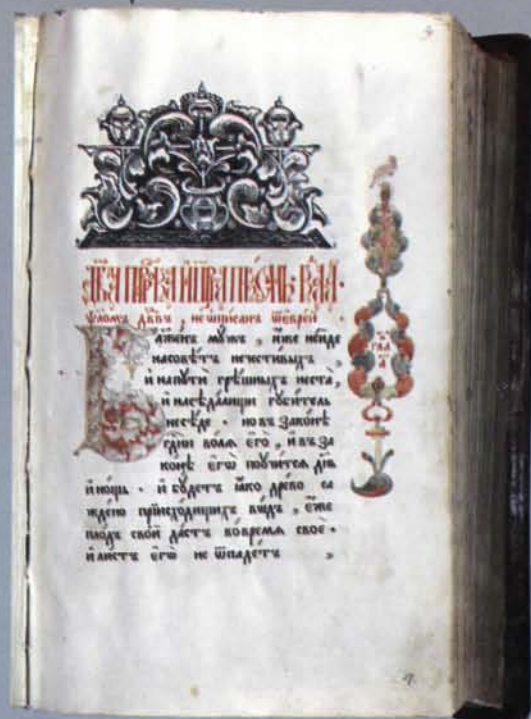 ѱало́мъ дв҃дъ , не ѿпи́санъ ѿ є҆вре́й ·
Бл҃же́нъ мꙋ́жъ , и҆́же не и́де
на совѣ́тъ нечести́выхъ ,
и҆ на пꙋти́ грѣ́шныхъ не ста̀ ,
и҆ на сѣда́лищи гꙋби́тель
не сѣ́де · но въ зако́нѣ
гд҃ни во́лѧ є҆го̀ , и҆ въ за
ко́нѣ є҆гѡ̀ поꙋчи́тсѧ дн҃ь
и҆ но́щь · и҆ бꙋ́детъ ꙗ҆́ко дре́во са
жде́но при и҆схо́дищихъ во́дъ , є҆́же
пло́дъ сво́й да́стъ во вре́мѧ своѐ ·
и҆ ли́стъ є҆гѡ̀ не ѿпаде́тъ ,